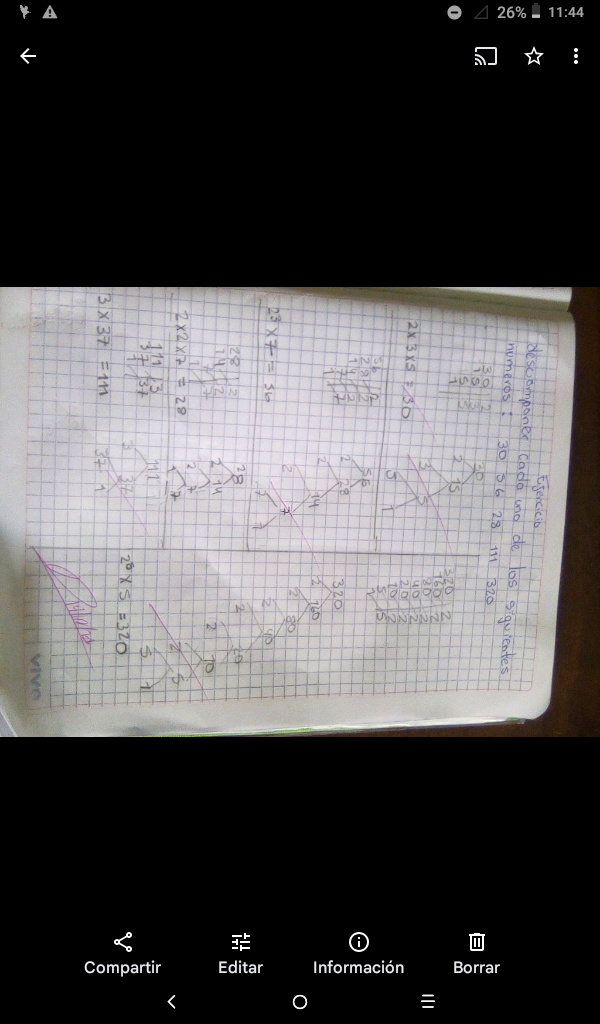 26% 11:44
Ejercicio
descomponer cada uno de los siguientes
números: 30 56 28 111 320
30 2
15 3
5 5
1
30
2 15
3 5
5 1
2x3x5 = 30
56 2
28 2
14 2
7 7
1
56
2 28
2 14
2 7
7 1
2³ x 7 = 56
28 2
14 2
7 7
1
28
2 14
2 7
7 1
2x2x7 = 28
111 3
37 37
1
111
3 37
37 1
3 x 37 = 111
320 2
160 2
80 2
40 2
20 2
10 2
5 5
1
320
2 160
2 80
2 40
2 20
2 10
2 5
5 1
2⁶ x 5 = 320
VIVO
Compartir Editar Información Borrar